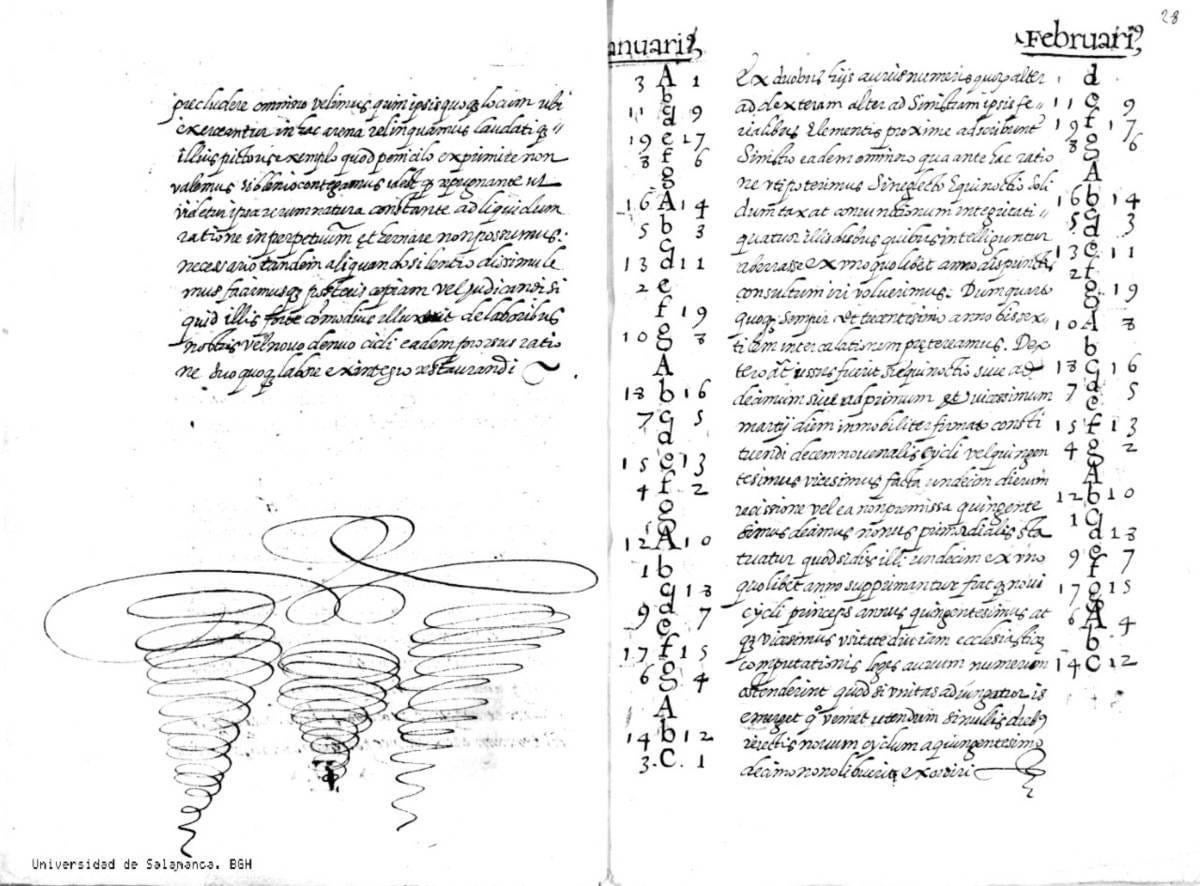 precludere omnino velimus quin ipsis quoq; locum ubi
exerceantur in hac arena relinquamus laudatiq;
illius pictoris exemplo quod penicilo exprimere non
valemus
videtur ipsa rerum natura constante ad liquidum
ratione in perpetuum et hernare non possumus:
necessario tandem aliquando silentio dissimule
mus faciamusq; posteris copiam vel judicandi si
quid illis forte comodius illuxerit de laboribus
nostris vel novo denuo cicli eadem prorsus ratio
ne duo quoq; labore ex integro restaurandi
Januari9
3 A 1
b
11 c 9
d
19 e 17
8 f 6
g
16 A 14
5 b 3
c
13 d 11
2 e
f 19
10 g 8
A
18 b 16
7 c 5
d
15 e 13
4 f 2
g
12 A 10
1 b
c 18
9 d 7
e
17 f 15
6 g 4
A
14 b 12
3 C 1
28
Februari9
Ex duobus hijs aureis numeris quor alter
ad dexteram alter ad sinistram ipsis fe-
rialibus Elementis proxime adscribunt
Sinistro eadem omnino qua ante hac ratio
ne uti poterimus Si neglecto Equinoctio soli
dumtaxat coniunctionum integritati
quatuor illis diebus quibus intelliguntur
aberrasse ex uno quolibet anno dispunctis
consultum iri voluerimus. Dum quarto
quoq; semper et trecentesimo anno bissex-
tilem intercalationem pretereamus. Dex
tero at
decimum sive ad primum et vicessimum
martij diem inmobiliter firmato consti
tuendi decemnovenalis Cycli vel quingen
tesimus vicesimus facta undecim dierum
recissione vel ea non premissa quingente
simus decimus nonus primordialis sta
tuatur quod si dies illi undecim ex uno
quolibet anno supprimantur fiat q; novi
cycli princeps annus quingentesimus at
q; vicesimus usitate diu iam ecclesiastice
computationis leges aureum numerum
ostenderint quod si unitas adiungatur is
emerget quo veniet utendum sin ullis dieb9
reiectis novum cyclum a quingentesimo
decimo nono libuerit exordiri
1 d
11 e 9
19 f 17
8 g 6
A
16 b 14
5 c 3
d
13 e 11
2 f
g 19
10 A 8
b
18 c 16
7 d 5
e
15 f 13
4 g 2
A
12 b 10
1 c
d 18
9 e 7
f
17 g 15
6 A 4
b
14 C 12
Universidad de Salamanca. BGH